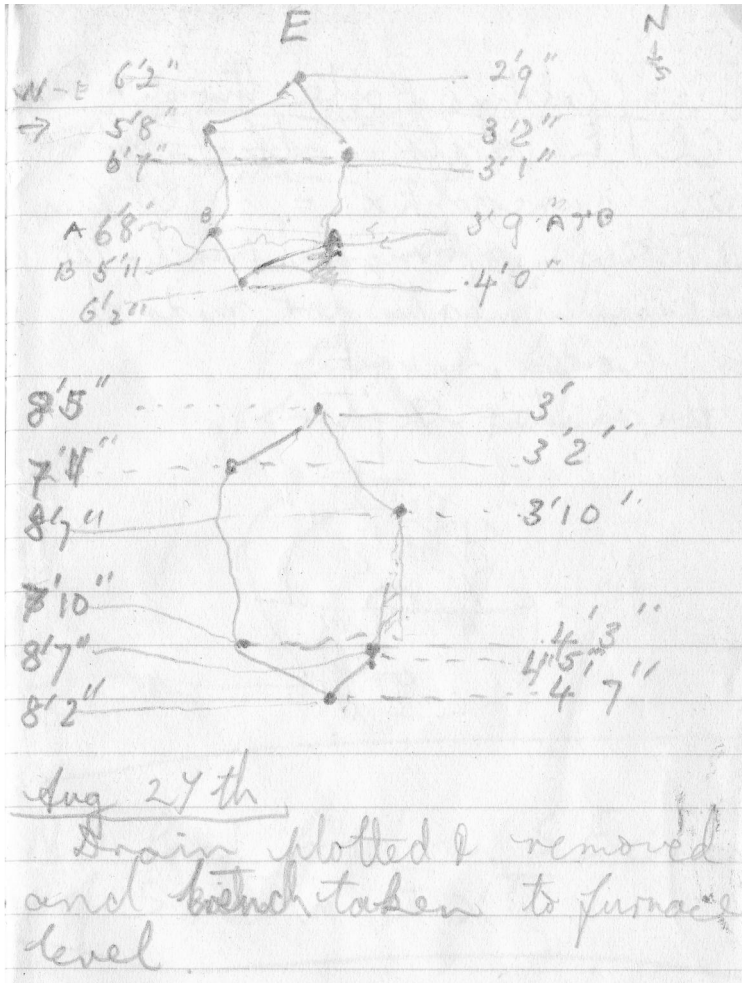 E N
S
N-E 6'2" 2'9"
→ 5'8" 3'2"
6'7" 3'1"
A 6'8" B 3'9" A+B
B 5'11 4'0"
6'2"
8'5" 3'
7'11" 3'2"
8'7" 3'10"
7'10" 4'3"
8'7" 4'5"
8'2" 4'7"
Aug 27th
Drain plotted & removed
and taken to furnace
level.